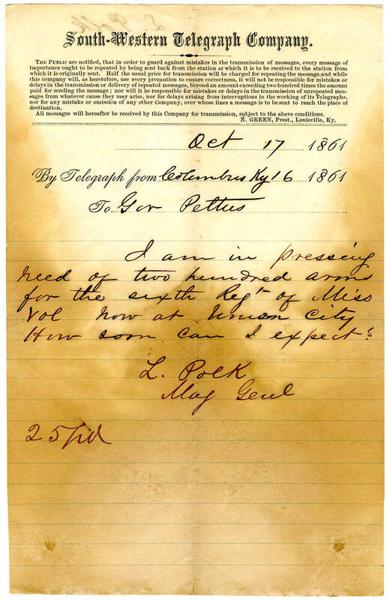 South-Western Telegraph Company.
THE PUBLIC are notified, that in order to guard against mistakes in the transmission of messages, every message of
importance ought to be repeated by being sent back from the station at which it is to be received to the station from
which it is originally sent. Half the usual price for transmission will be charged for repeating the message, and while
this company will, as heretofore, use every precaution to ensure correctness, it will not be responsible for mistakes or
delays in the transmission or delivery of repeated messages, beyond an amount exceeding two hundred times the amount
paid for sending the message; nor will it be responsible for mistakes or delays in the transmission of unrepeated mes-
sages from whatever cause they may arise, nor for delays arising from interruptions in the working of its Telegraphs,
nor for any mistake or omission of any other Company, over whose lines a message is to be sent to reach the place of
destination.
All messages will hereafter be received by this Company for transmission, subject to the above conditions.
N. GREEN, Prest., Louisville, Ky.
Oct 17 1861
By Telegraph from Columbus Ky 16 1861
To Gov Pettus
I am in pressing
need of two hundred arms
for the sixth Regt of Miss
Vol now at Union City
How soon can I expect?
L. Polk
Maj Genl
25/pd